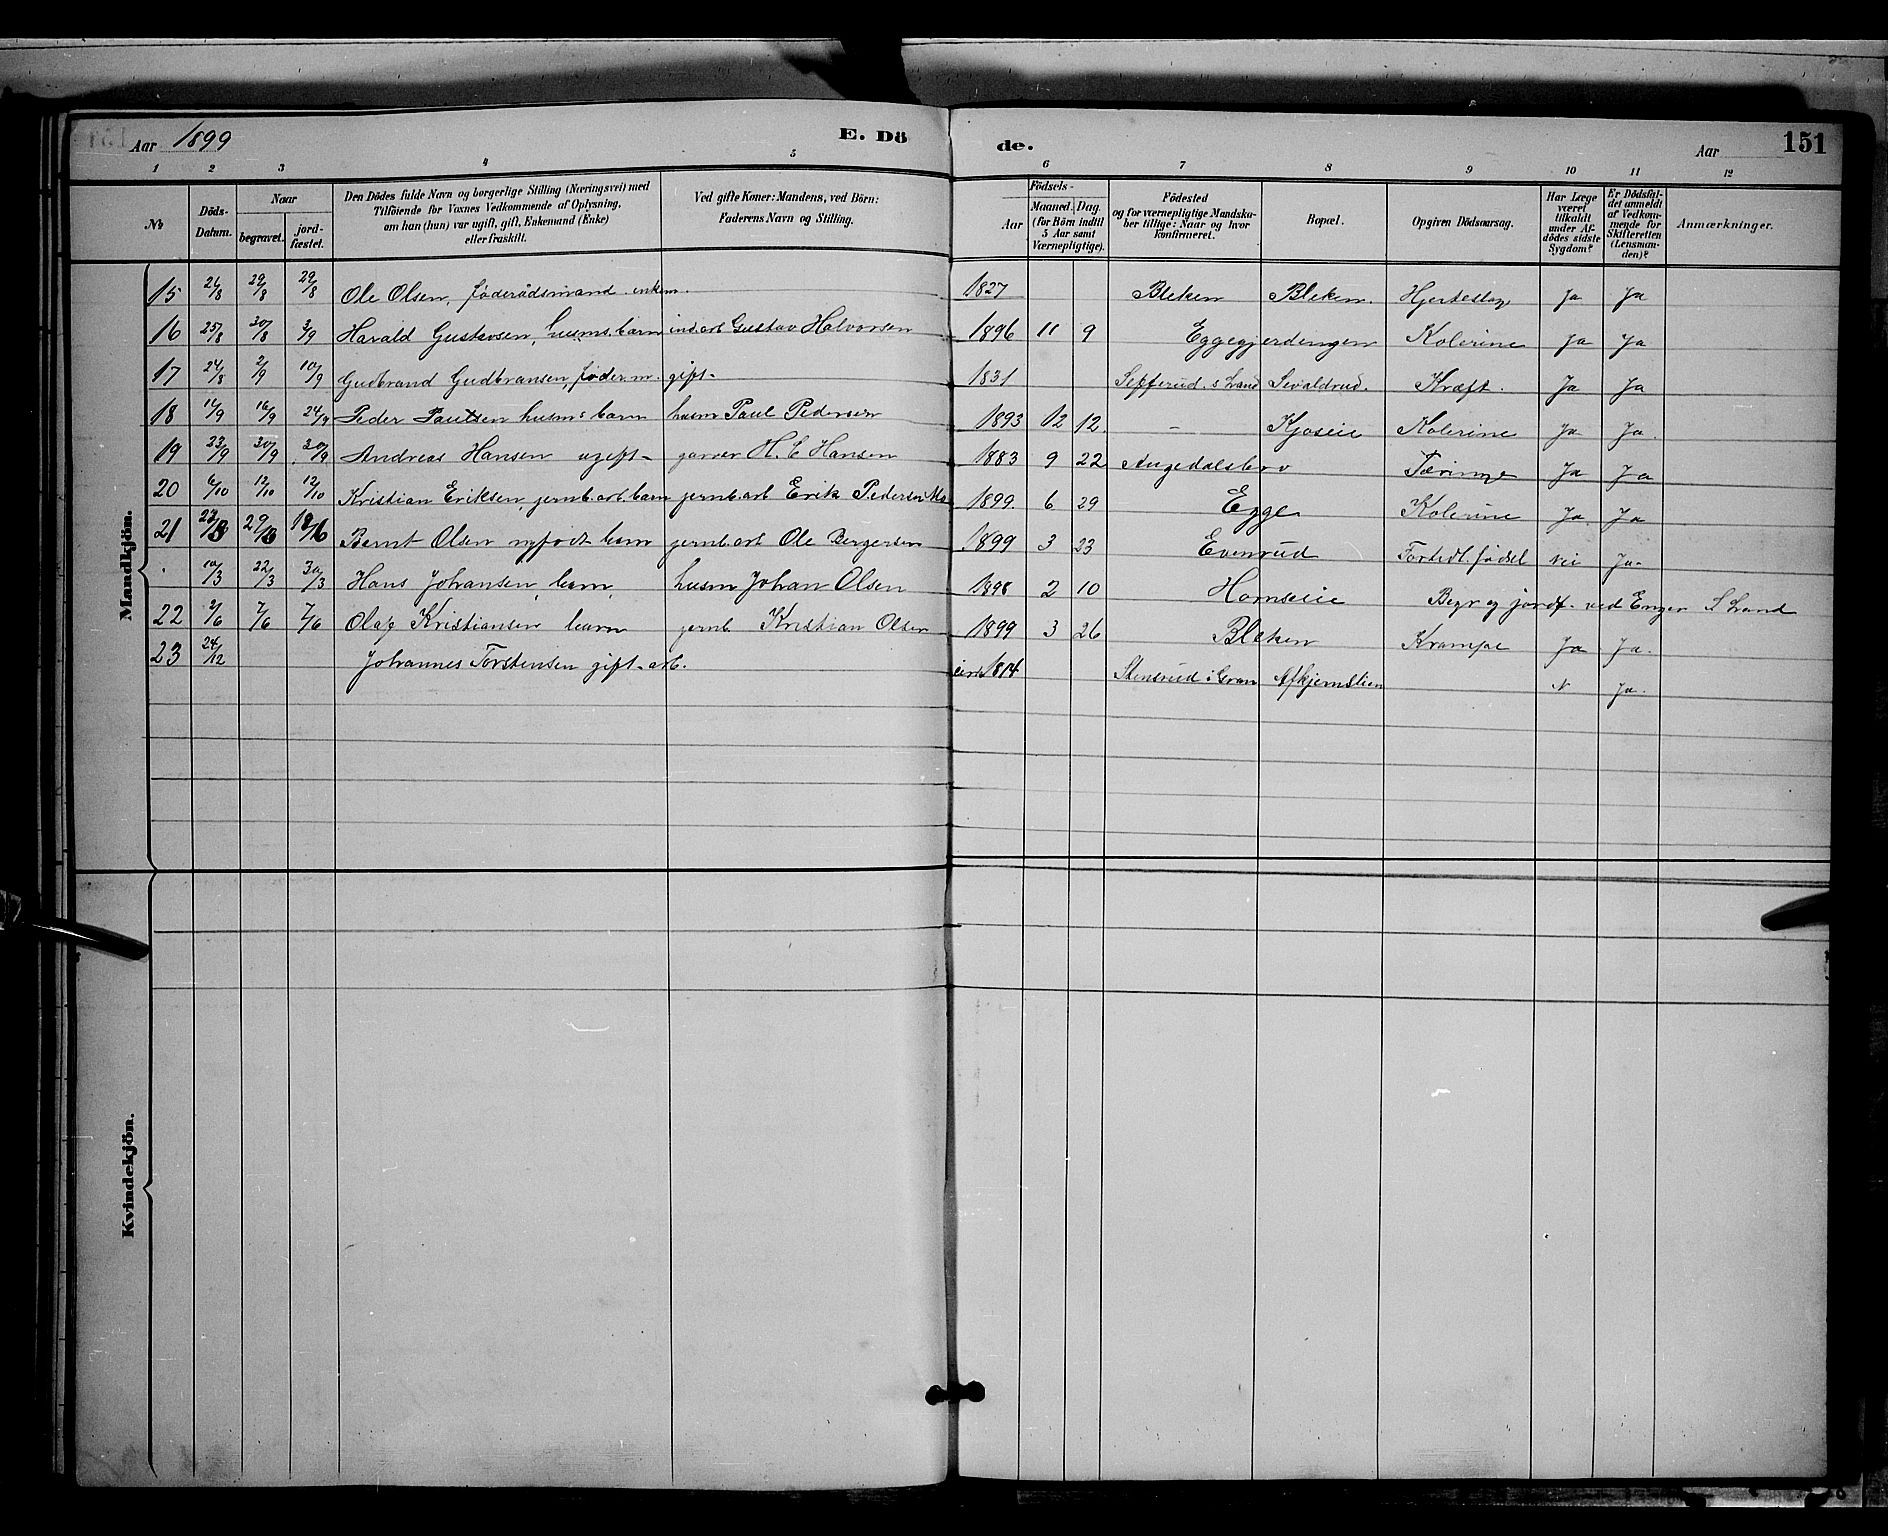 Aar 1899
E. Dö
de.
Aar
151
1 2 3 4 5 6 7 8 9 10 11 12
No
Döds-Datum.
Naar
begravet.
jord-fæstet.
Den Dödes fulde Navn og borgerlige Stilling (Næringsvei) med
Tilföiende for Voxnes Vedkommende af Oplysning,
om han (hun) var ugift, gift, Enkemand (Enke)
eller fraskilt.
Ved gifte Koner: Mandens, ved Börn:
Faderens Navn og Stilling.
Födsels-
Aar
Maaned. Dag.
(for Börn indtil
5 Aar samt
Værnepligtige).
Födested
og for værnepligtige Mandska-
ber tillige: Naar og hvor
konfirmeret.
Bopæl.
Opgiven Dödsaarsag.
Har Læge
været
tilkaldt
under Af-
dödes sidste
Sygdom?
Er Dödsfal-
det anmeldt
af Vedkom-
mende for
Skifteretten
(Lensman-
den)?
Anmærkninger.
Mandkjön.
15 29/8 29/8 Ole Olsen, föderådsmand enkem. 1827 Bleken Bleken. Hjerteslag Ja Ja
16 25/8 30/8 3/9 Harald Gustavsen, husms. barn ind.arb Gustav Halvorsen 1896 11 9 Eggegjerdengen Kolerine Ja Ja
17 24/8 2/9 10/9 Gudbrand Gudbransen, föder.m. gift- 1831 s Land Sevaldrud. Kræft. Ja Ja
18 16/9 24/9 Peder Paulsen husms barn husm Paul Pedersen 1893 12 12. - Kjoseie Kolerine Ja Ja.
19 23/9 30/9 30/9 Andreas Hansen ugift- H. C Hansen 1883 9 22 Tæringe Ja Ja
20 6/10 12/10 12/10 Kristian Eriksen, jernb.arb. barn jernb.arb Erik Pedersen 1899. 6 29 Egge Kolerine Ja. Ja
21 Bernt Olsen nyfödt barn jernb.arb Ole Bergersen 1899 3 23 Evenrud Fortidl. födsel nei Ja.
10/3 22/3 30/3 Hans Johansen, barn, husm Johan Olsen 1898 2 10 Homseie Begr og jordf. ved Enger S Land
22 2/6 7/6 7/6 Olaf Kristiansen barn jernb. Kristian Olsen 1899 3 26 Bleken Krampe Ja Ja.
23 24/12 Johannes Torstensen gift- arb. cirk 1814 Stensrud i Gran Afkjernslien N Ja.
Kvindekjön.